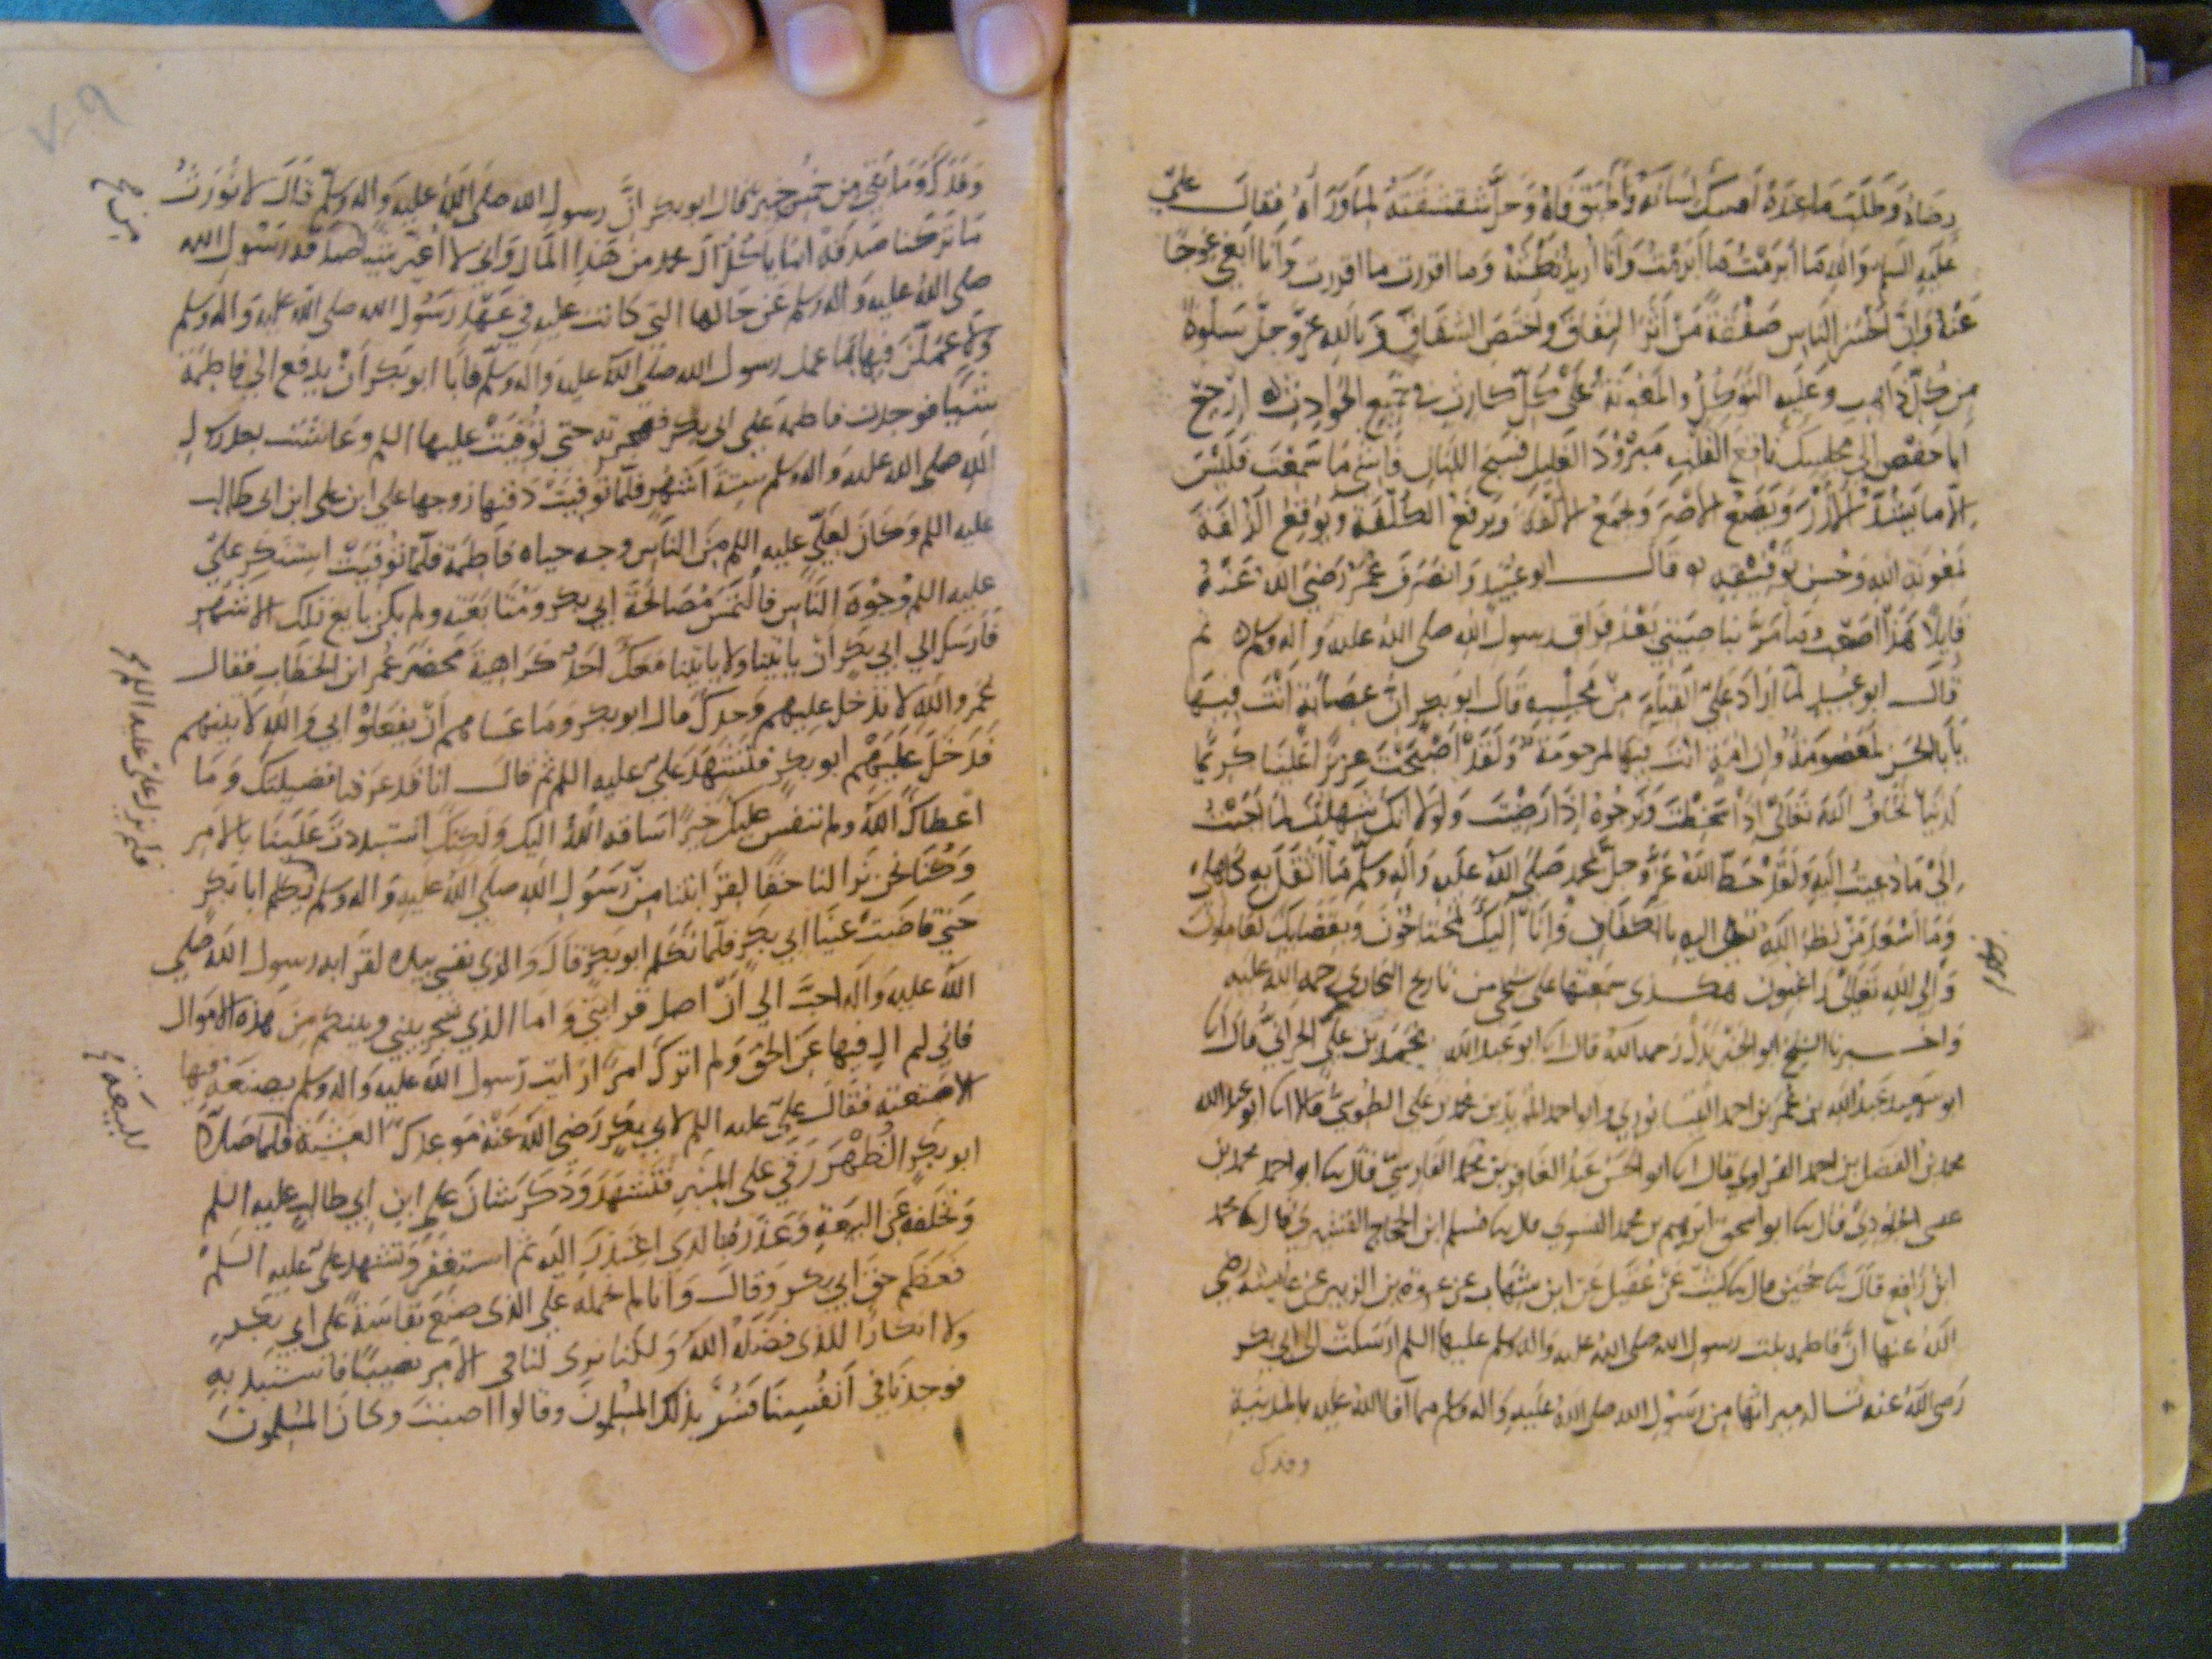 رضاه وطلب ما عنده امسك لسانه واطبق فاه وجل شقشقته لما وراه فقال علي
عليه السلم والله ما ابرمت ما ابرمت وانا اريد نكثه وما اقررت ما اقررت وانا ابغي عوجا
عنه وان اخسر الناس صفقة من اثر النفاق واحتضن الشقاق وبالله عز وجل سلوة
من كل ذاهب وعليه التوكل والمعونة على كل كارث في جميع الحوادث ارجع
ابا حفص الى مجلسك ناقع القلب مبرود الغليل فسيح اللبان فليس
الا ما يشد الازر ويضع الاصر ويجمع الالفة ويرفع الكلفة ويوقع الزلفة
بمعونة الله وحسن توفيقه قال ابو عبيد وانصرف عمر رضي الله عنه
قايلا هذا اصعب وما مر بنا صيتي بعد فراق رسول الله صلى الله عليه واله وسلم
قال ابو عبيد لما اراد علي القيام من مجلسه قال ابو بكر ان عصابة انت فيها
يا بالحسن لمعصومة وان امة انت فيها لمرحومة ولقد اصبحت عزيزا علينا كريما
لدينا نخاف الله تعالى اذا سخطت ونرجوه اذا رضيت ولولا انك شهلت لما اجبت
الى ما دعيت اليه ولقد حط الله عز وجل بمحمد صلى الله عليه واله وسلم ما اثقل به كاهلي
وما اسعد من نظر الله اليه بالكفاف وانا اليك لمحتاجون وبفضلك لعالمون
والى الله تعالى راغبون هكذى سمعتها على شيخي من تاريخ البخاري رحمه الله عليه
واخبرنا الشيخ ابو الخير بدل رحمه الله قال انا ابو عبد الله محمد بن علي الحراني قال انا
ابو سعيد عبد الله بن عمر بن احمد النيسابوري وانا احمد المؤيد بن محمد بن علي الطوسي قالا انا ابو عبد الله
محمد بن الفضل بن احمد الفراوي قال انا ابو الحسن عبد الغافر بن محمد الفارسي قال ثنا ابو احمد محمد بن
عيسى الجلودي قال ثنا ابو اسحق ابرهيم بن محمد الفسوي قال ثنا مسلم ابن الحجاج القشيري قال ثنا محمد
ابن رافع قال ثنا حجين قال ثنا ليث عن عقيل عن ابن شهاب عن عروة بن الزبير عن عايشة رضي
الله عنها ان فاطمه بنت رسول الله صلى الله عليه واله وسلم عليها السلم ارسلت الى ابي بكر
رضي الله عنه تساله ميراثها من رسول الله صلى الله عليه واله وسلم مما افا الله عليه بالمدينة
وفدك
وفدك وما بقي من خمس خيبر فقال ابو بكر ان رسول الله صلى الله عليه واله وسلم قال لا نورث
ما تركنا صدقة انما ياكل ال محمد من هذا المال واني لا اغير شيئا صدقة رسول الله
صلى الله عليه واله وسلم عن حالها التي كانت عليه في عهد رسول الله صلى الله عليه واله وسلم
ولاعملن فيها بما عمل رسول الله صلى الله عليه واله وسلم فابا ابو بكر ان يدفع الى فاطمة
شيا فوجدت فاطمة على ابي بكر فهجرته حتى توفيت عليها السلم وعاشت بعد رسول
الله صلى الله عليه واله وسلم ستة اشهر فلما توفيت دفنها زوجها علي ابن ابي طالب
عليه السلم وكان لعلي عليه السلم من الناس وجه حياه فاطمة فلما توفيت استنكر علي
عليه السلم وجوه الناس فالتمس مصالحة ابي بكر ومتابعته ولم يكن بايع تلك الاشهر
فارسل الى ابي بكر ان ياتينا ولا ياتينا معك احد كراهية محضر عمر ابن الخطاب فقال
عمر والله لا تدخل عليهم وحدك قال ابو بكر وما عساهم ان يفعلو ابي والله لاتينهم
فدخل عليهم ابو بكر فتشهد علي عليه السلم ثم قال انا قد عرفنا فضيلتك وما
اعطاك الله ولم ننفس عليك خيرا ساقه الله اليك ولكنك استبددت علينا بالامر
وكنا نحن نرا لنا حقا لقرابتنا من رسول الله صلى الله عليه واله وسلم يكلم ابا بكر
حتى فاضت عينا ابي بكر فلما تكلم ابو بكر قال والذي نفسي بيده لقرابه رسول الله صلى
الله عليه واله احب الي ان اصل قرابتي واما الذي شجر بيني وبينكم من هذه الاموال
فاني لم ال فيها عن الحق ولم اترك امرا رايت رسول الله عليه واله وسلم يصنعه فيها
الا صنعته فقال علي عليه السلم لابي بكر رضي الله عنه موعدك العشية فلما صلا
ابو بكر الظهر رقي على المنبر فتشهد وذكر شان علي ابن ابي طالب عليه السلم
وتخلفه عن البيعة وعذره بالذي اعتذر اليه ثم استغفر وتشهد علي عليه السلم
فعظم حق ابي بكر وقال وانا لم يحمله على الذي صنع نفاسة على ابي بكر
ولا انكارا للذي فضله الله ولكنا نرى لنا في الامر نصيبا فاستبد به
فوجدنا في انفسنا فسر بذلك المسلمون وقالوا اصبت وكان المسلمون
فلم يزل علي عليه السلم
للبيعة
٧٠٩